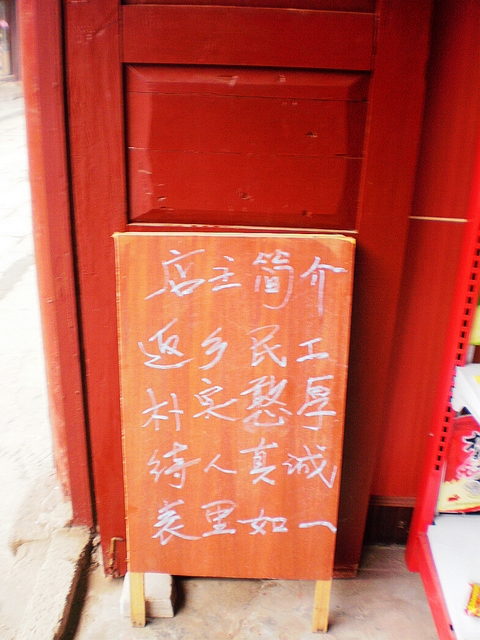 店主简介
返乡民工
朴实憨厚
待人真诚
表里如一